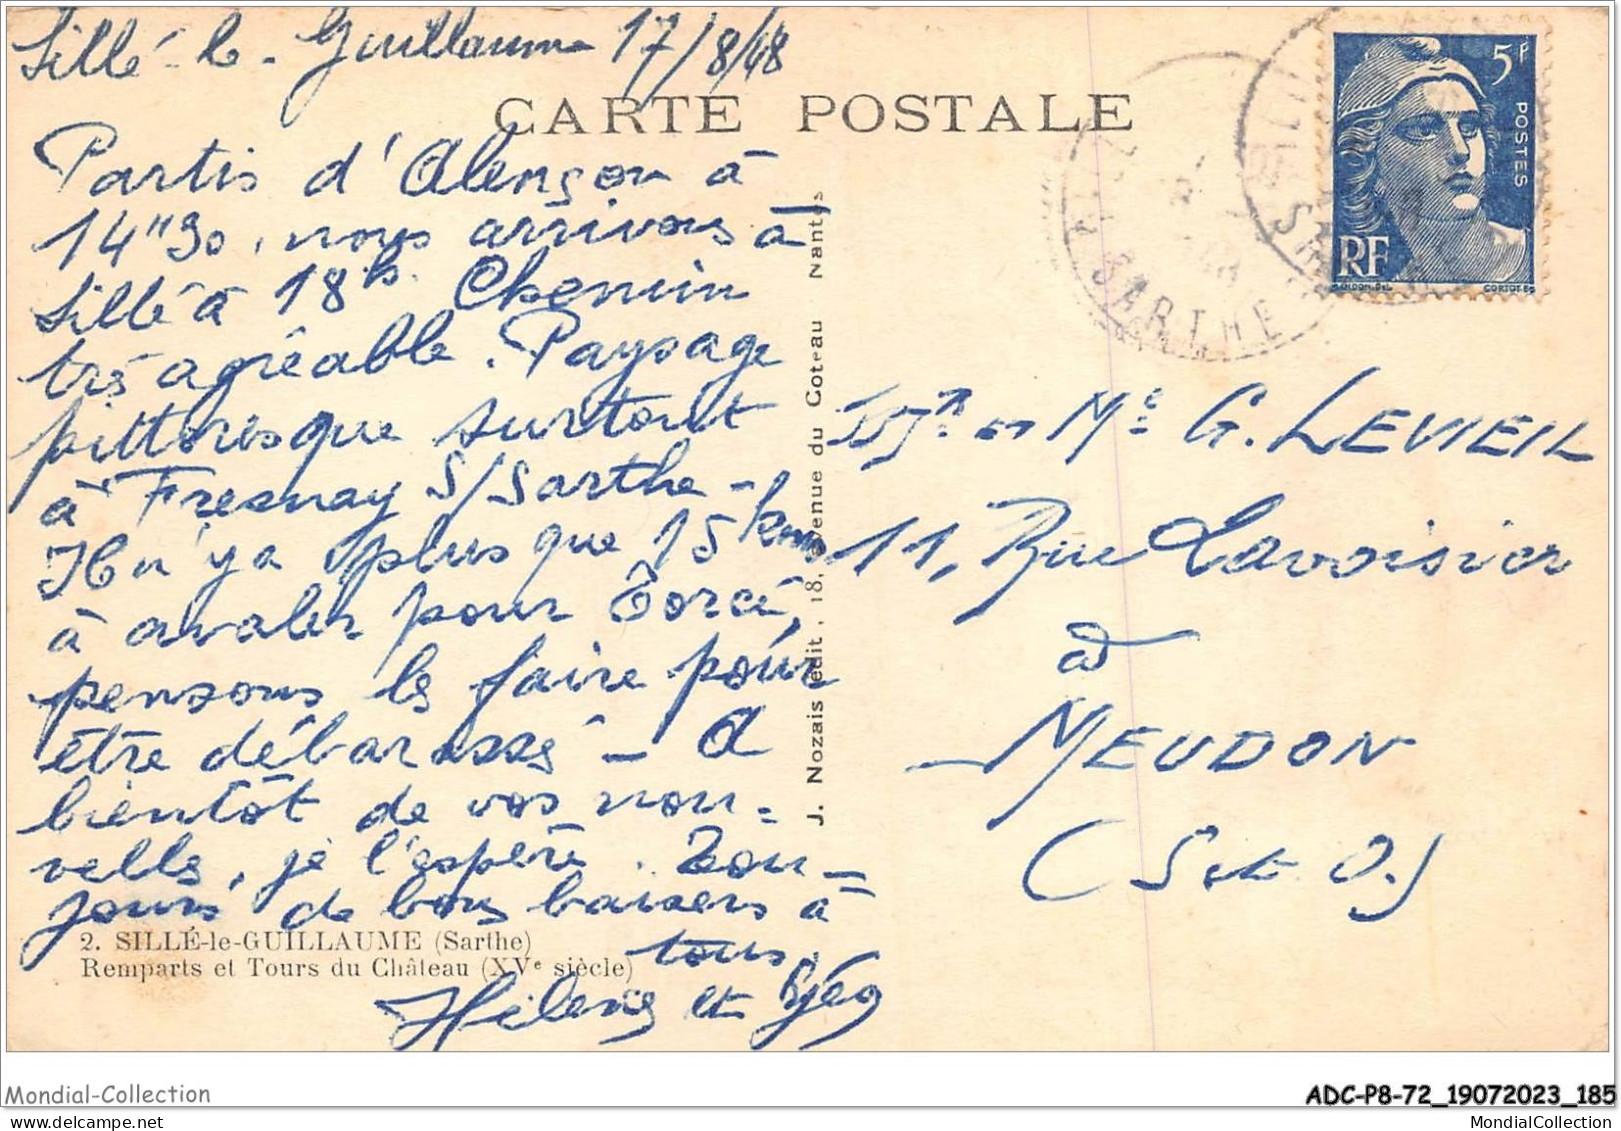 Sillé-le-Guillaume 17/8/48
CARTE POSTALE
Partis d'Alençon à
14h30, nous arrivons à
Sillé à 18h. Chemin
très agréable. Paysage
pittoresque surtout
à Fresnay s/Sarthe -
Il n'y a plus que 15 km
à avaler pour Torcé,
pensons le faire pour
être débarassé - A
bientôt de vos nou=
velles, je l'espère. Tou-
jours de bons baisers à
tous.
Hélène et Géo
2. SILLÉ-le-GUILLAUME (Sarthe)
Remparts et Tours du Château (XVe siècle)
J. Nozais édit, 18, avenue du Coteau Nantes
5F
POSTES
RF
CORTOT
SARTHE
Mr et Me G. LEVIEIL
11, Rue Lavoisier
à
MEUDON
(S et O.)
Mondial-Collection
ADC-P8-72_19072023_185
MondialCollection.com